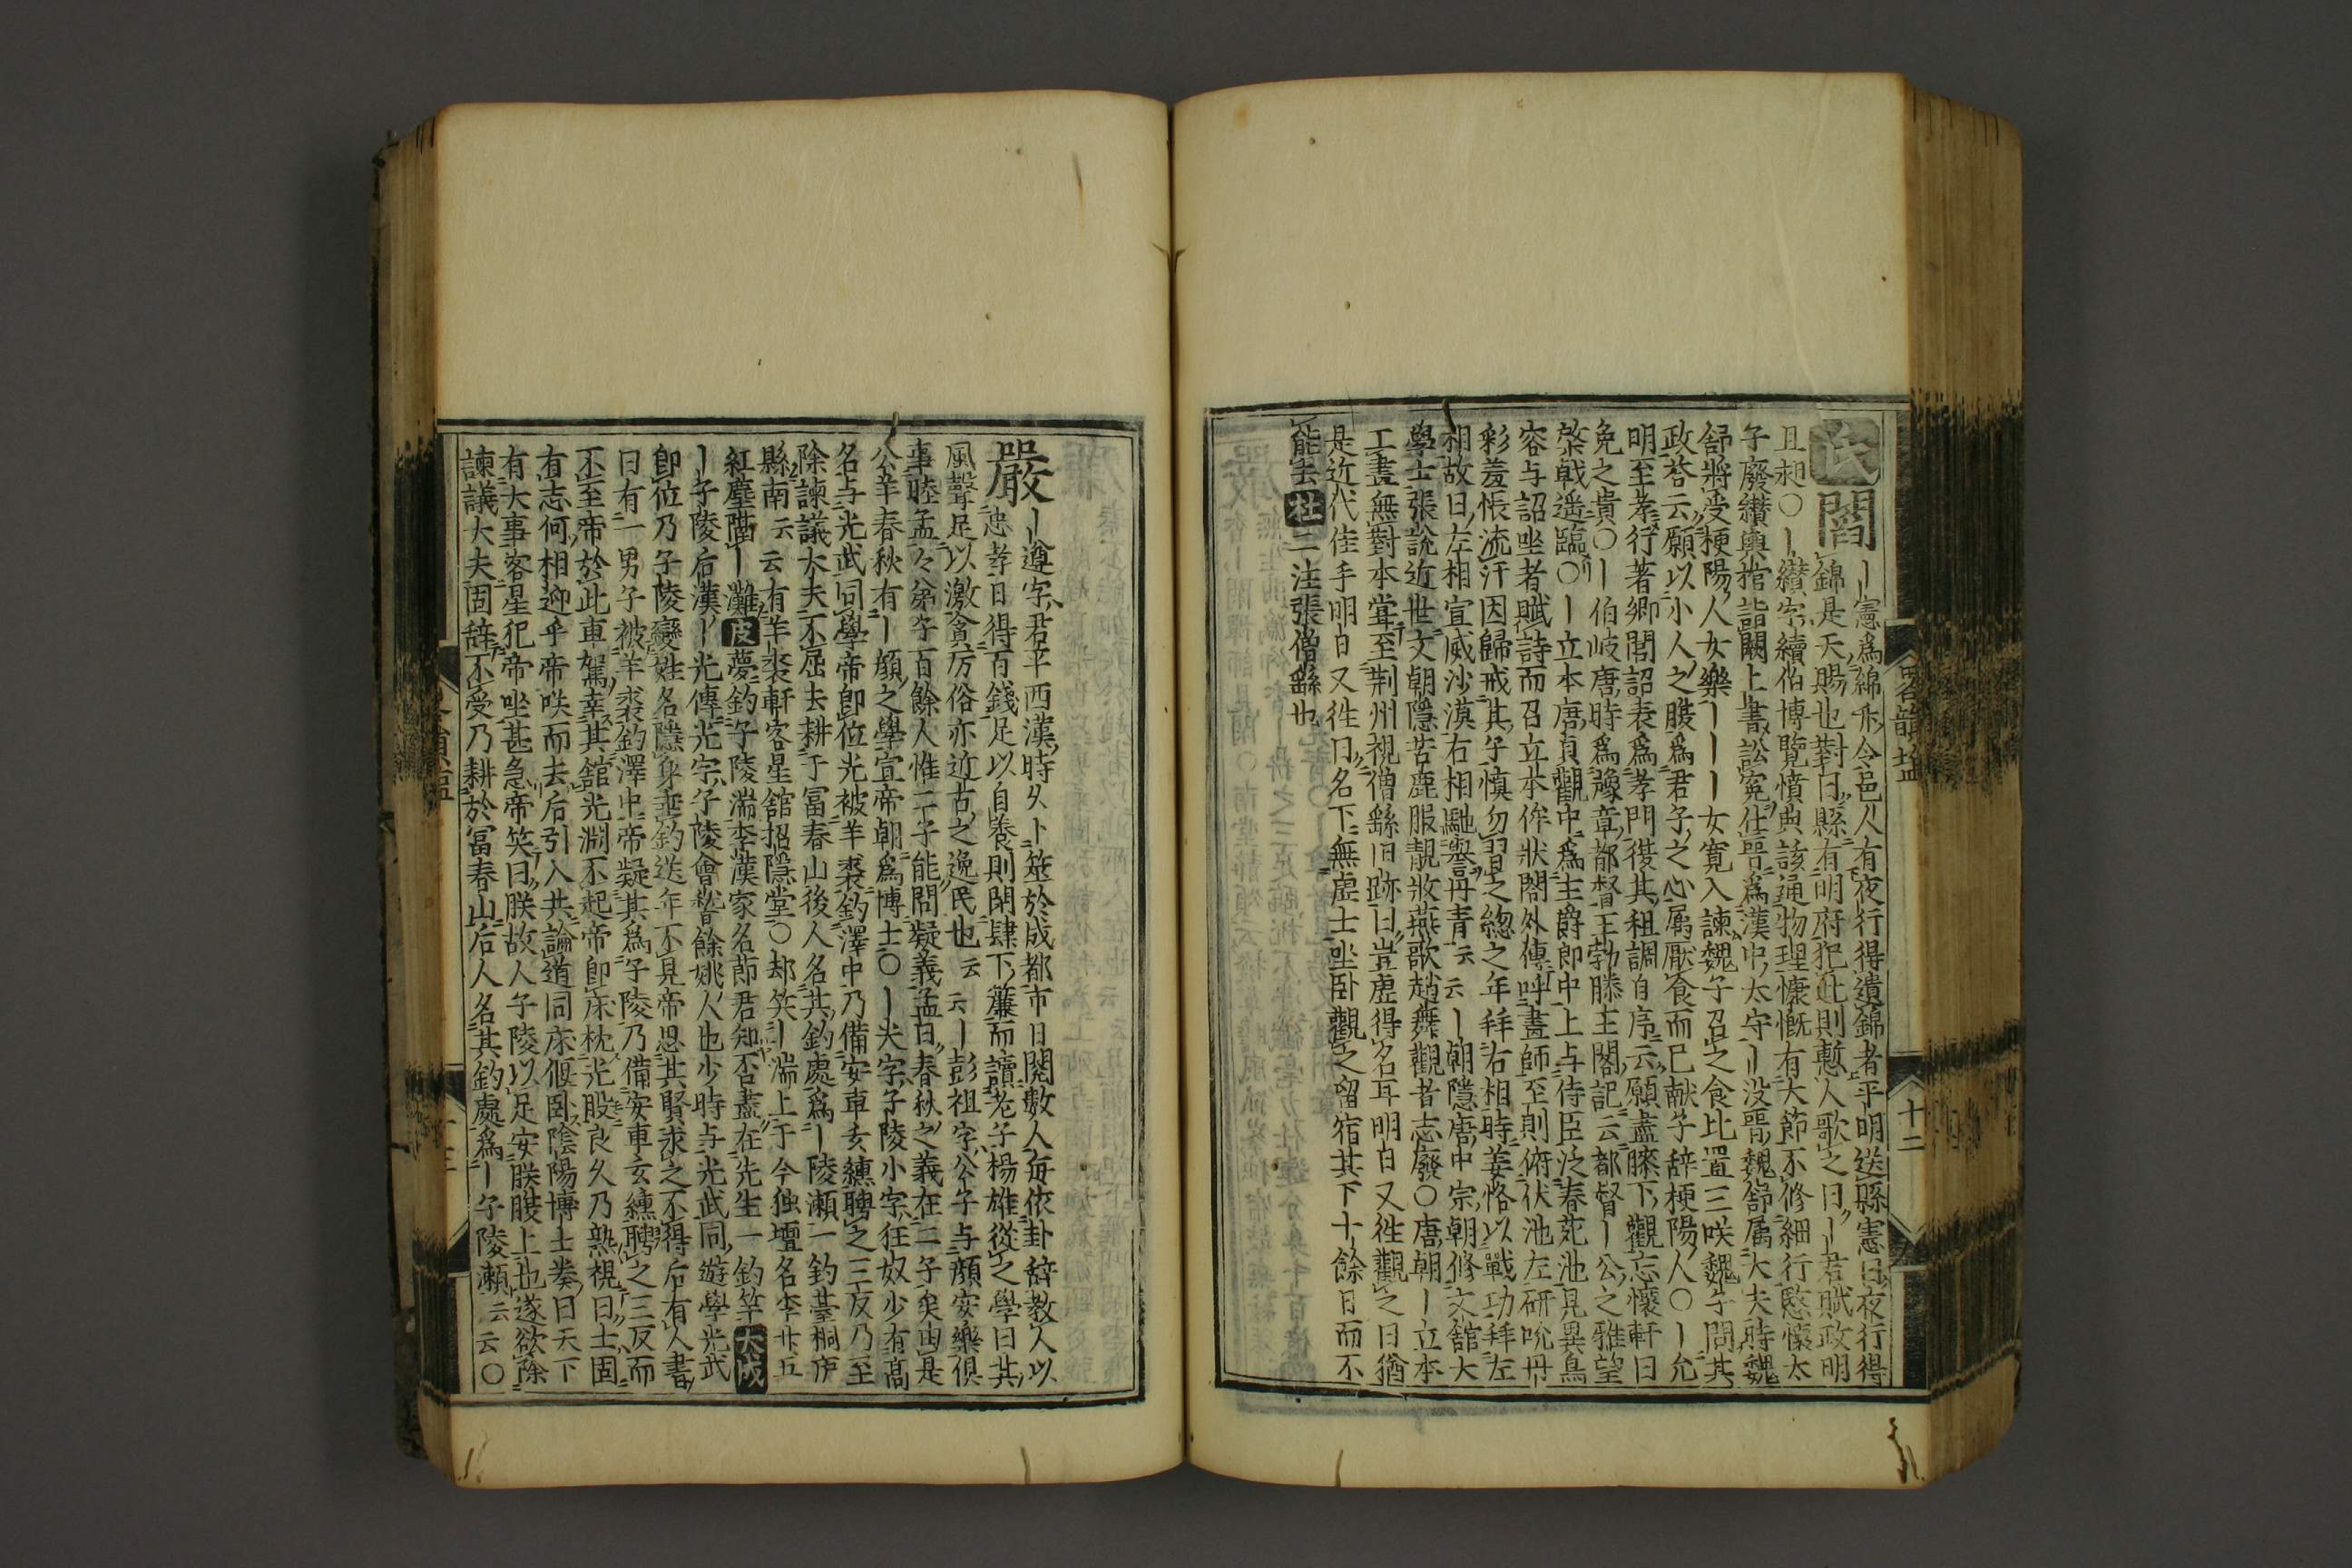 氏閻｜憲爲綿氶令邑人有夜行得遺錦者平明送縣憲曰夜行得
錦是天賜也對曰縣有明府犯此則慙人歌之曰｜君賦政明
且昶〇｜纉字續伯博覽憤典該通物理慷慨有大節不修細行愍懷太
子廢纉輿棺詣闕上書訟寃仕晋爲漢中太守｜没晋魏舒属大夫時魏
舒將受梗陽人女樂｜｜｜女寛入諫魏子召之食比置三咲魏子問其
政荅云願以小人之腹爲君子之心属厭食而已献子辞梗陽人〇｜允
明至孝行著郷閭詔表爲孝門復其租調自序云願盡膝下觀忘懷軒日
免之貴〇｜伯岐唐時爲豫章都督王勃滕王閣記云都督｜公之雅望
棨戟遥臨〇｜立本唐貞觀中爲主爵郎中上与侍臣泛春苑池見異鳥
容与詔坐者賦詩而召立本侔狀閤外傳呼畫師至則俯伏池左研吮丹
彩羞悵流汗因歸戒其子慎勿習之総之年拜右相時姜恪以戰功拜左
相故曰左相宣威沙漠右相馳譽丹青云云｜朝隱唐中宗朝修文舘大
學士張説近世文朝隱苦麗服靚妝燕歌趙舞觀者志廢〇唐朝｜立本
工畫無對本甞至荆州視僧繇旧跡曰豈虚得名耳明日又徃觀之曰猶
是近代佳手明日又徃曰名下無虚士坐卧觀之留宿其下十餘日而不
能去杜二注張僧繇也
畧韻
十二
嚴｜遵字君平西漢時久卜筮於成都市日閱數人毎依卦辞教人以
忠孝日得百錢足以自養則閉肆下簾而讀老子楊雄從之學曰其
風聲足以激貪厉俗亦近古之逸民也云云｜彭祖字公子与顔安樂俱
事睦孟々弟子百餘人惟二子能問疑義孟曰春秋之義在二子矣由是
公羊春秋有｜顔之學宣帝朝爲博士〇｜夫字子陵小字狂奴少有髙
名与光武同學帝即位光被羊裘釣澤中乃備安車玄纁聘之三反乃至
除諫議大夫不屈去耕于冨春山後人名其釣處爲｜陵瀬一釣䑓桐庐
縣南云云有羊裘軒客星舘招隱堂〇却笑｜湍上于今独壇名李廿五
紅塵凿｜灘皮夢釣子陵湍李漢家名節君知否盡在先生一釣竿大成
｜子陵后漢｜光傳光字子陵會稽餘姚人也少時与光武同遊學光武
即位乃子陵變姓名隱身垂釣送年不見帝思其賢求之不得后有人書
曰有一男子被羊裘釣澤中帝疑其爲子陵乃備安車玄纁聘之三反而
不至帝於此車駕幸其舘光凅不起帝卽床枕光股良久乃熟視曰士固
有志何相迎乎帝咲而去后引入共論道同床偃卧陰陽博士奏曰天下
有大事客星犯帝坐甚急帝笑曰朕故人子陵以足安朕腹上也遂欲除
諫議大夫固辞不受乃耕於冨春山后人名其釣處爲｜子陵瀬云云〇